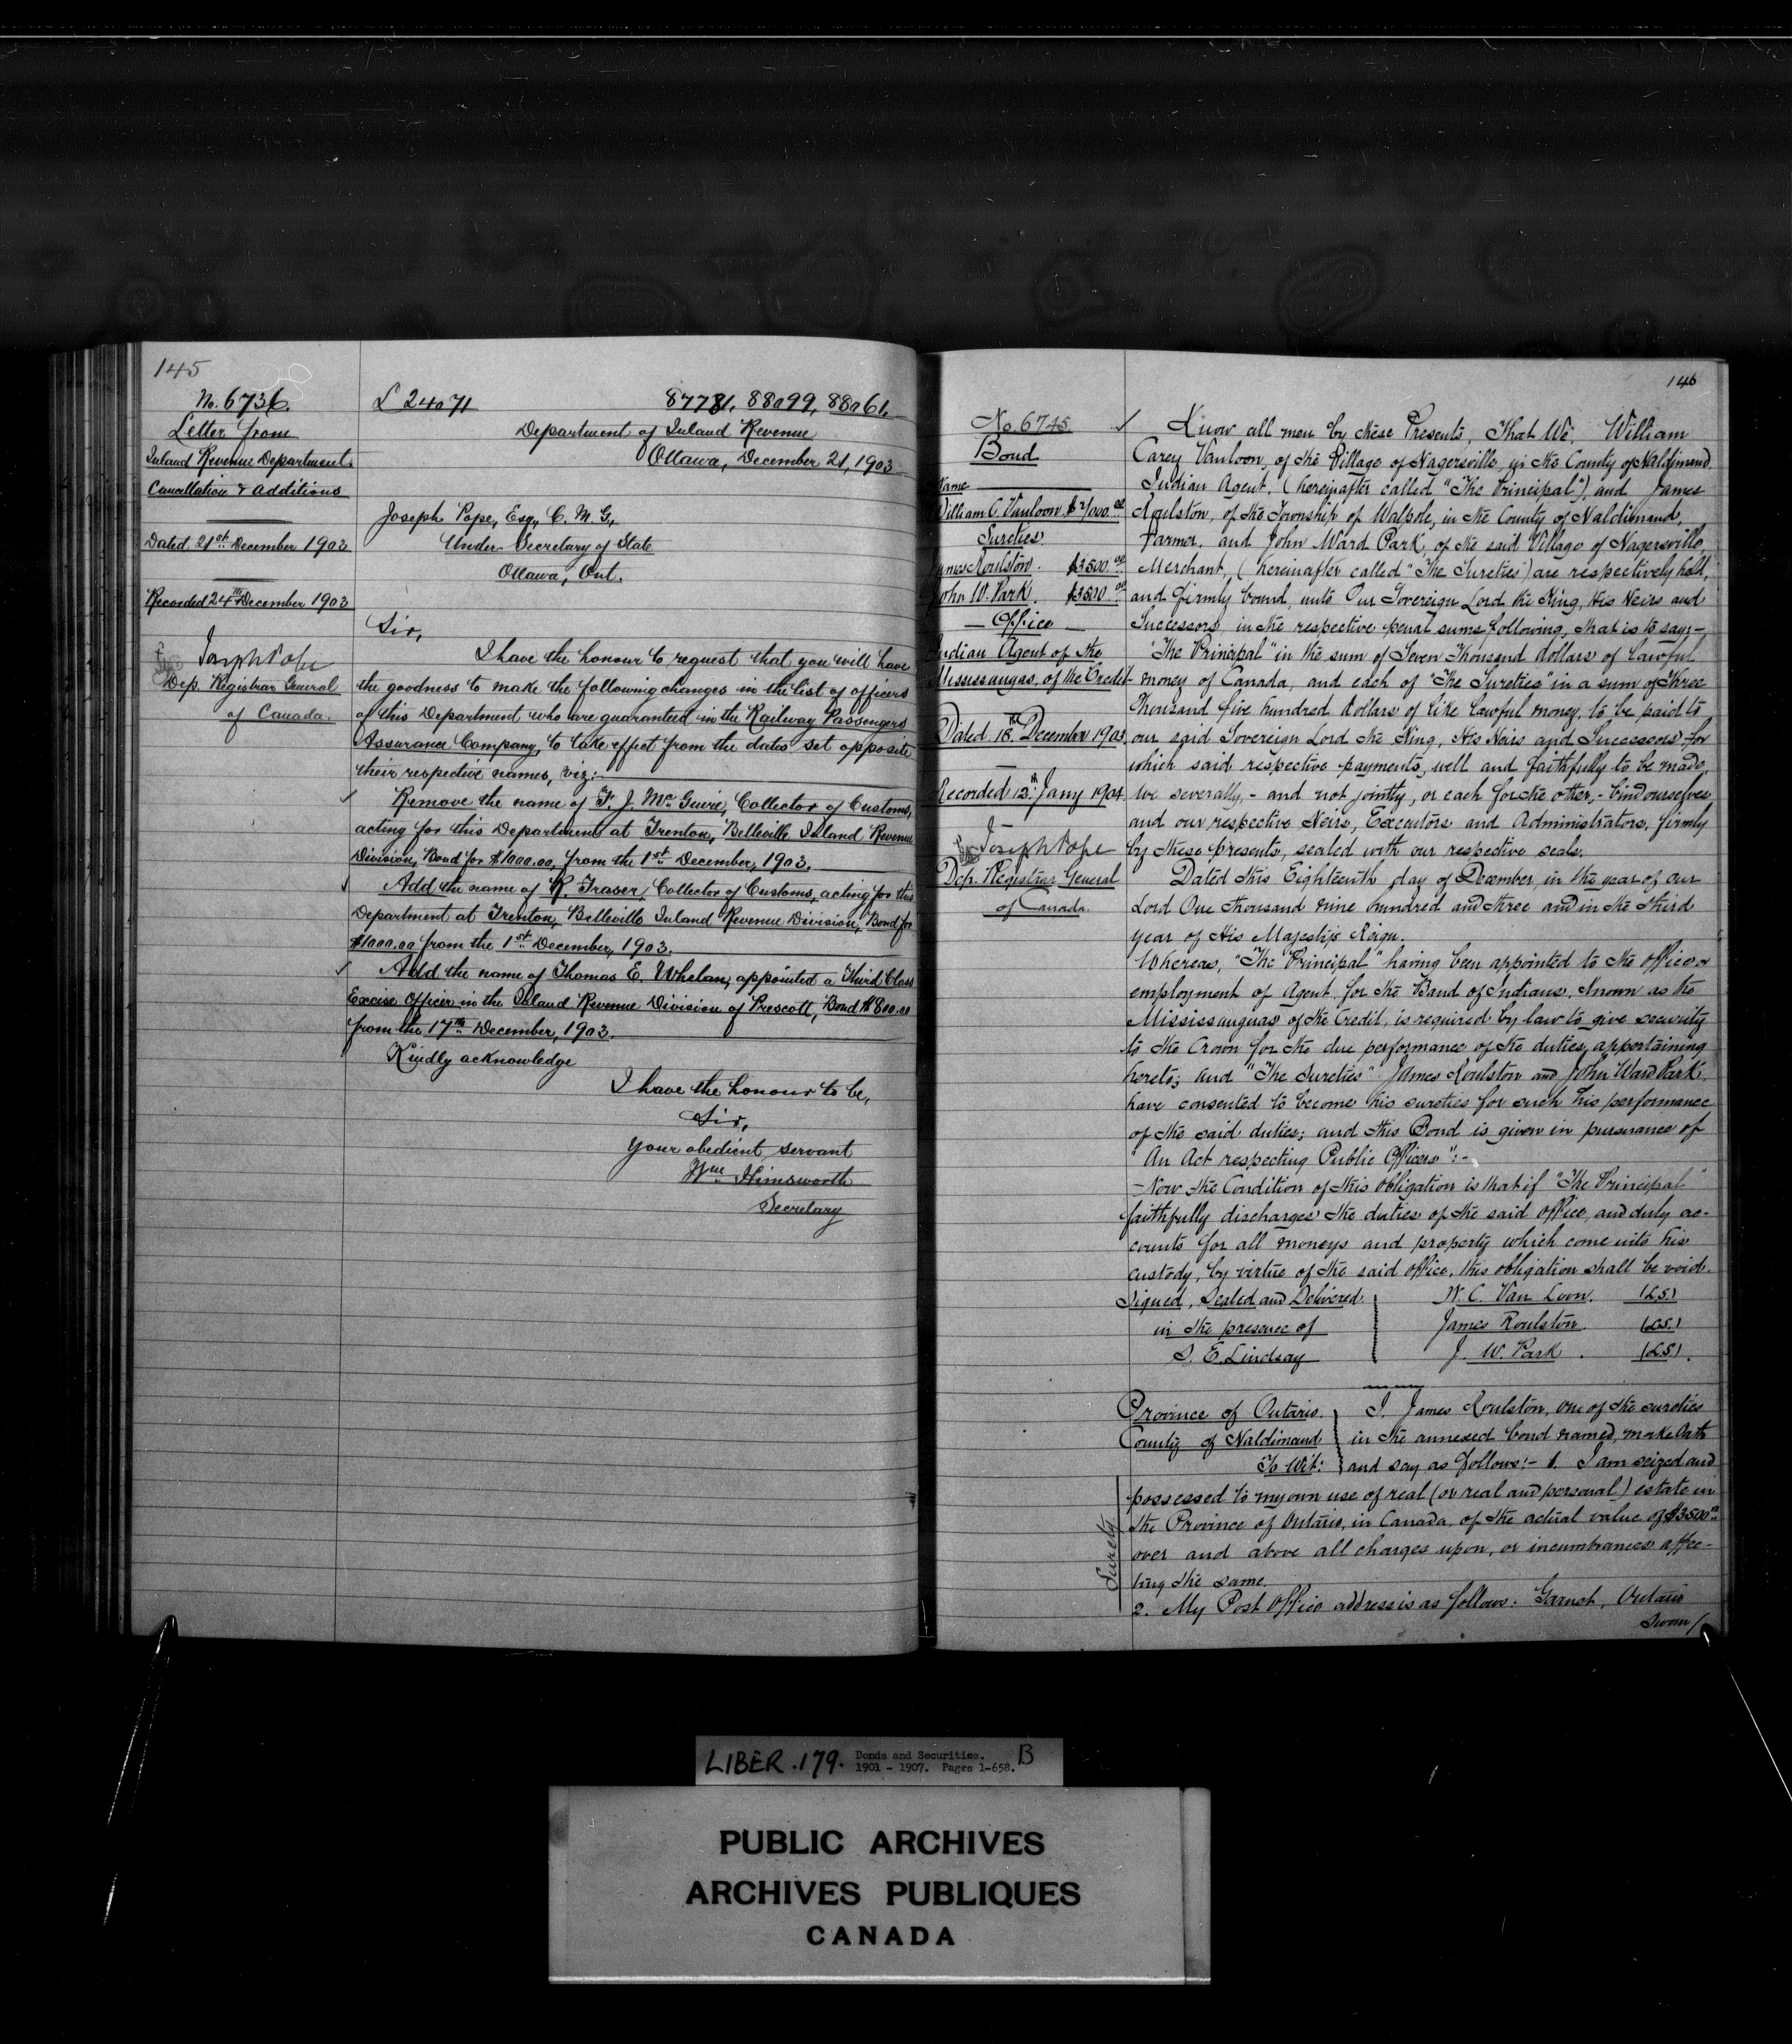 145
No. 6736.
Letter from
Inland Revenue Department.
Cancellation & Additions
Dated 21st December 1903
Recorded 24th December 1903
Joseph Pope
Dep. Registrar General
of Canada.
L 24071 87781, 88099, 88061.
Department of Inland Revenue
Ottawa, December 21, 1903
Joseph Pope, Esq., C. M. G.,
Under-Secretary of State
Ottawa, Ont.
Sir,
I have the honour to request that you will have
the goodness to make the following changes in the list of officers
of this Department who are guaranteed in the Railway Passengers
Assurance Company, to take effect from the dates set opposite
their respective names, viz:-
✓ Remove the name of F. J. McGuire, Collector of Customs,
acting for this Department at Trenton, Belleville Inland Revenue
Division, Bond for $1000.00, from the 1st December, 1903.
✓ Add the name of R. Fraser, Collector of Customs, acting for this
Department at Trenton, Belleville Inland Revenue Division, Bond for
$1000.00 from the 1st December, 1903.
✓ Add the name of Thomas E. Whelan, appointed a Third Class
Excise Officer in the Inland Revenue Division of Prescott, Bond $800.00
from the 17th December, 1903.
Kindly acknowledge
I have the honour to be,
Sir,
Your obedient servant
Wm Himsworth
Secretary
146
No. 6745
Bond
Name
William C. Vanloon $7000.00
Sureties.
James Roulston. $3500.00
John W. Park. $3500.00
Office
Indian Agent of the
Mississaugas, of the Credit
Dated 18th December 1903
Recorded 12th Jany 1904
Joseph Pope
Dep. Registrar General
of Canada.
✓ Know all men by these Presents, That We, William
Carey Vanloon, of the Village of Hagersville, in the County of Haldimand
Indian Agent, (hereinafter called "The Principal"), and James
Roulston, of the Township of Walpole, in the County of Haldimand,
Farmer, and John Ward Park, of the said Village of Hagersville,
Merchant, (hereinafter called "The Sureties") are respectively held,
and firmly bound, unto Our Sovereign Lord the King, His Heirs and
Successors in the respective penal sums following, that is to say:-
"The Principal" in the sum of Seven Thousand dollars of lawful
money of Canada, and each of "The Sureties" in a sum of Three
Thousand five hundred dollars of like lawful money, to be paid to
our said Sovereign Lord the King, His Heirs and Successors for
which said respective payments, well and faithfully to be made,
we severally, - and not jointly, or each for the other, - bind ourselves
and our respective Heirs, Executors and Administrators, firmly
by these presents, sealed with our respective seals.
Dated this Eighteenth day of December, in the year of our
Lord One thousand nine hundred and three and in the third
year of His Majesty's Reign.
Whereas, "The Principal" having been appointed to the office or
employment of Agent for the Band of Indians, known as the
Mississauguas of the Credit, is required by law to give security
to the Crown for the due performance of the duties appertaining
hereto; and "The Sureties" James Roulston and John Ward Park,
have consented to become his sureties for such his performance
of the said duties; and this Bond is given in pursuance of
"An Act respecting Public Officers":-
-Now the Condition of this obligation is that if "The Principal"
faithfully discharges the duties of the said office, and duly ac-
counts for all moneys and property which come into his
custody, by virtue of the said office, this obligation shall be void.
Signed, Sealed and Delivered W. C. Van Loon. (L.S.)
in the presence of James Roulston. (L.S.)
S. E. Lindsay J. W. Park. (L.S.)
Province of Ontario. I, James Roulston, one of the sureties
County of Haldimand in the annexed bond named, make Oath
To Wit: and say as follows:- 1. I am seized and
possessed to my own use of real (or real and personal) estate in
the Province of Ontario, in Canada, of the actual value of $3500.00
over and above all charges upon, or incumbrances affec-
ting the same.
Surety
2. My Post Office address is as follows: Garnet, Ontario
Sworn/
LIBER .179. Bonds and Securities. B
1901 - 1907. Pages 1-658.
PUBLIC ARCHIVES
ARCHIVES PUBLIQUES
CANADA